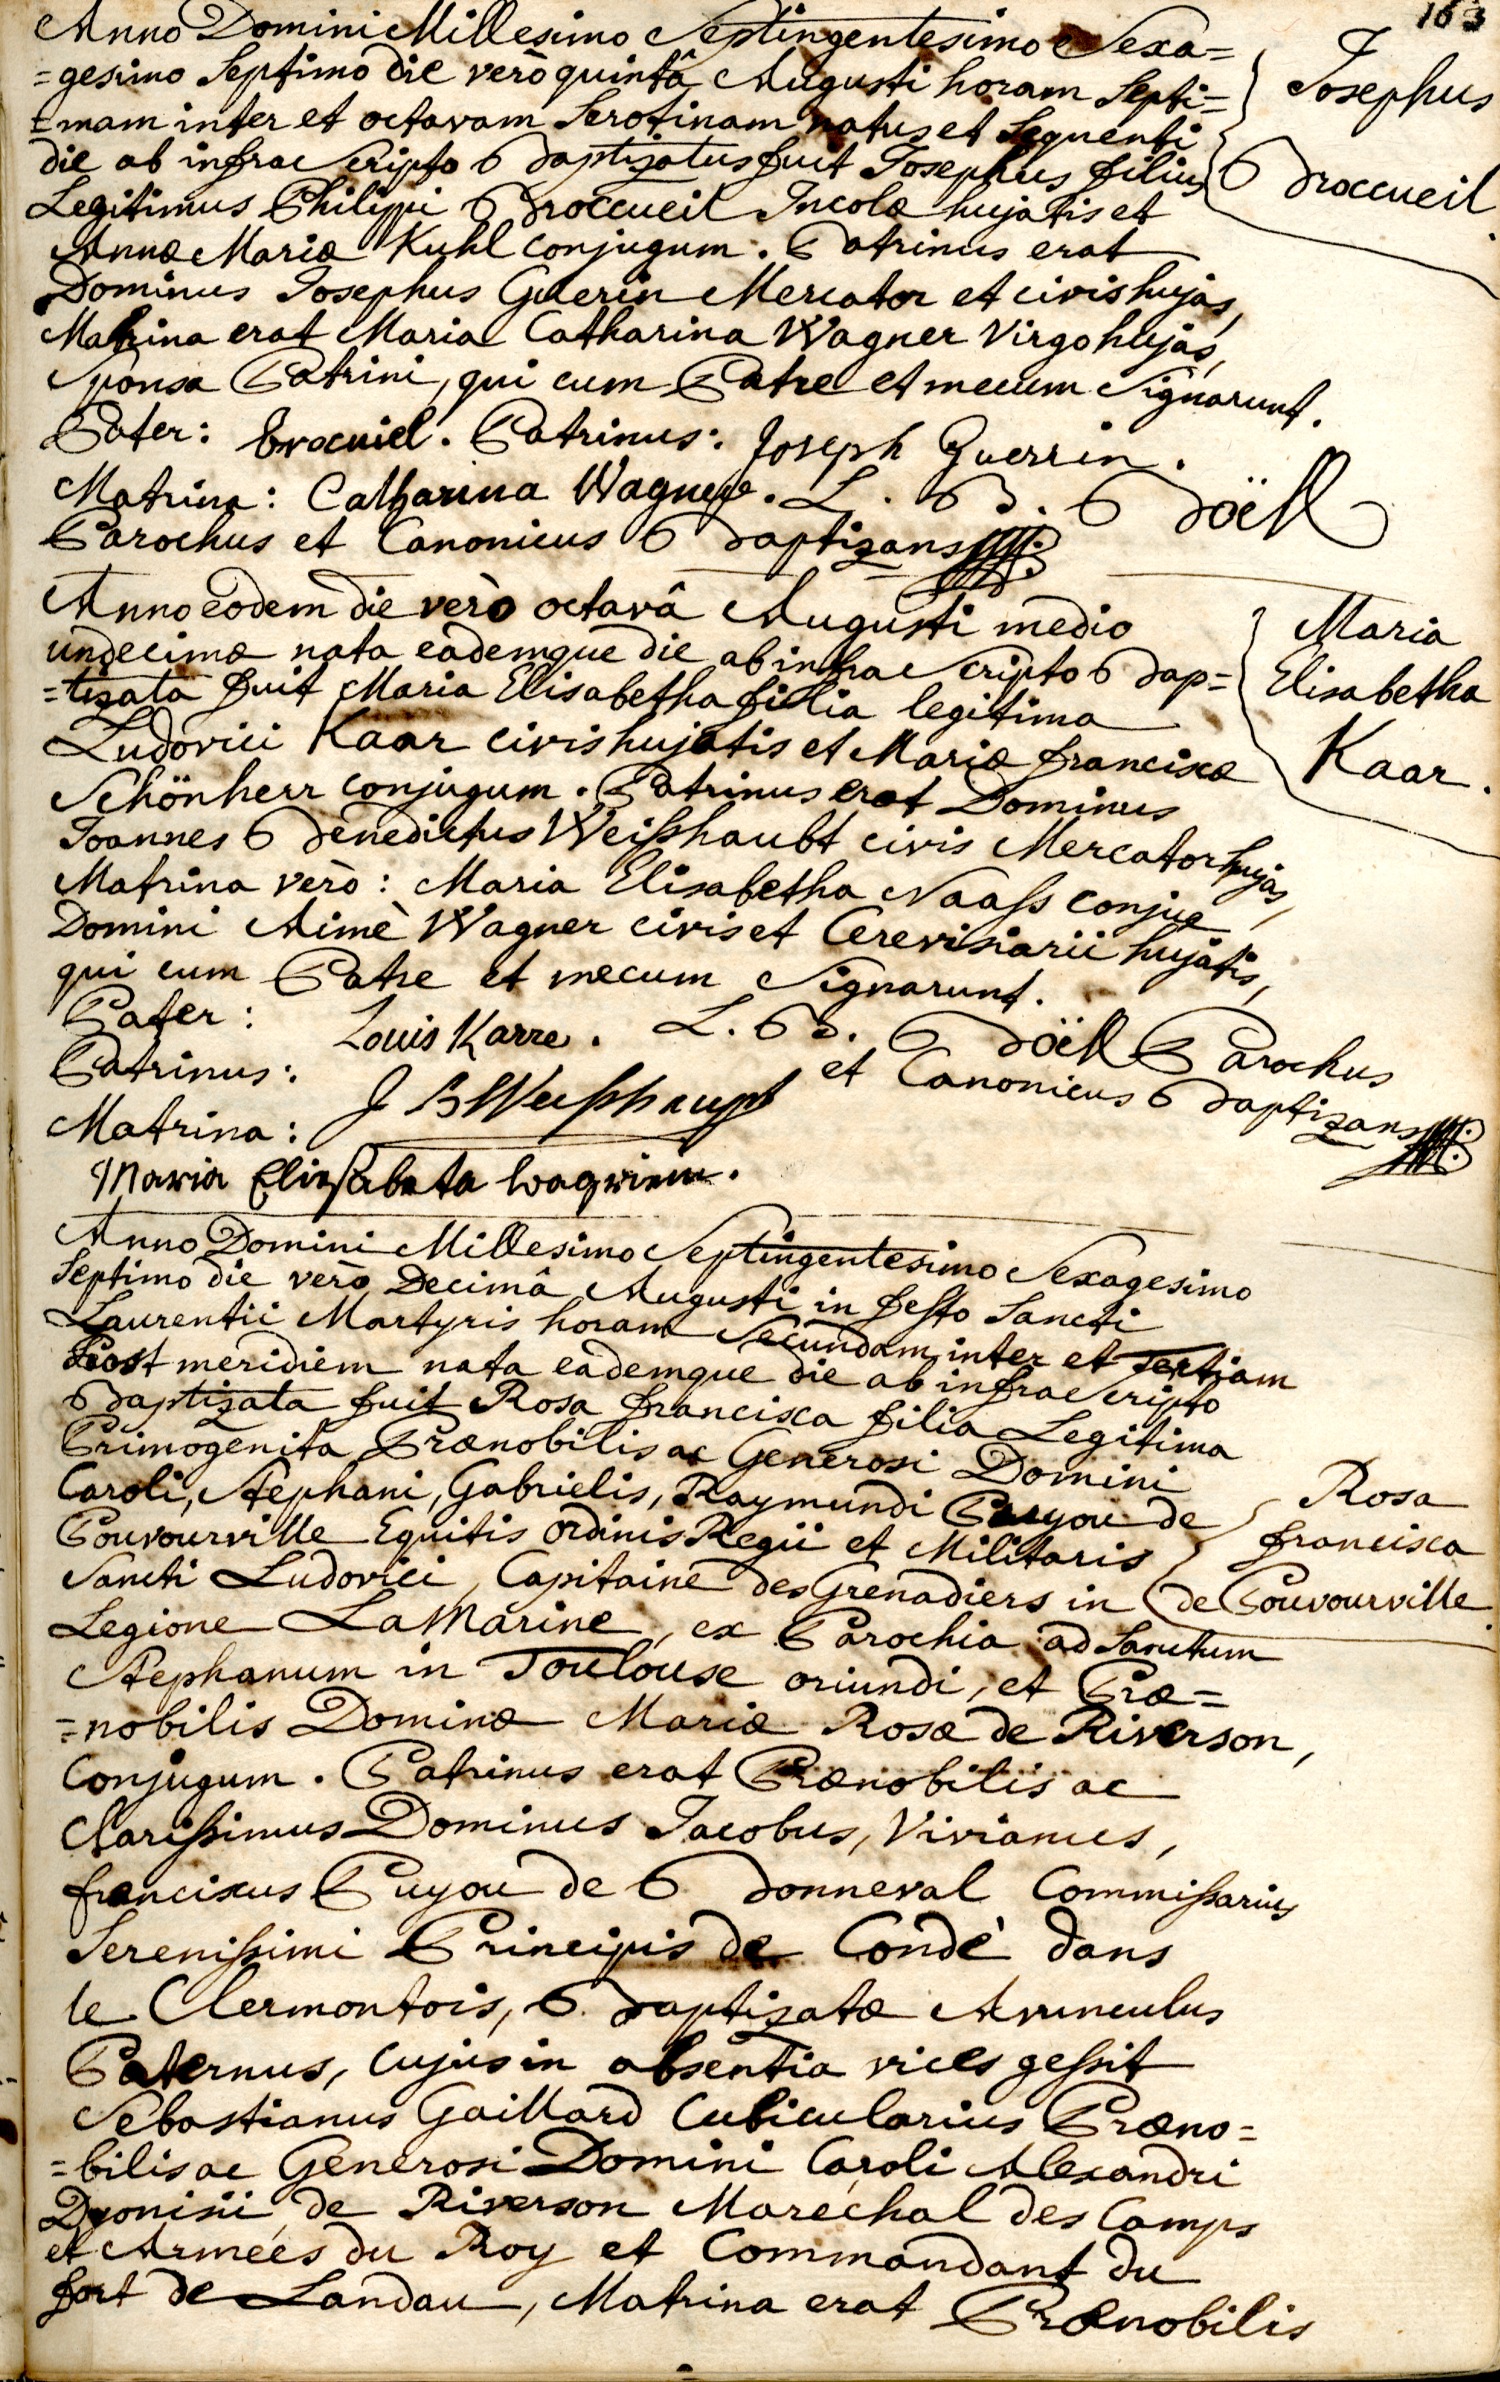 163
Anno Domini Millesimo Septingentesimo Sexa=
=gesimo Septimo die verò quintâ Augusti horam Septi=
=mam inter et octavam Serotinam natus et Sequenti
die ab infrascripto Baptizatus fuit Josephus filius
Legitimus Philippi Broccueil Incolæ hujatis et
Annæ Mariæ Kuhl conjugum. Patrinus erat
Dominus Josephus Guerin Mercator et civis hujas,
Matrina erat Maria Catharina Wagner Virgo hujas,
Sponsa Patrini, qui cum Patre et mecum Signarunt.
Pater: Brocuiel. Patrinus: Joseph Guerrin.
Matrina: Catharina Wagner. L. B. Boëll
Parochus et Canonicus Baptizans
Josephus
Broccueil.
Anno eodem die verò octavâ Augusti medio
undecimæ nata eademque die ab infrascripto Bap=
=tizata fuit Maria Elisabetha filia legitima
Ludovici Kaar civis hujatis et Mariæ franciscæ
Schönherr conjugum. Patrinus erat Dominus
Joannes Benedictus Weißhaubt civis Mercator hujas,
Matrina verò: Maria Elisabetha Naaß conjux
Domini Aimè Wagner civis et Cerevisiarii hujatis,
qui cum Patre et mecum Signarunt.
Pater: Louis Karre. L. B. Boëll Parochus
et Canonicus Baptizans
Patrinus: J B Weishaupt
Matrina:
Maria Eliesabeta wagnerin.
Maria
Elisabetha
Kaar.
Anno Domini Millesimo Septingentesimo Sexagesimo
Septimo die verò Decimâ Augusti in festo Sancti
Laurentii Martyris horam Secundam inter et tertiam
Post meridiem nata eademque die ab infrascripto
Baptizata fuit Rosa francisca filia Legitima
Primogenita Prænobilis ac Generosi Domini
Caroli, Stephani, Gabrielis, Raymundi Puyou de
Pouvourville Equitis ordinis Regii et Militaris
Sancti Ludovici, Capitaine des Grenadiers in
Legione La Marine, ex Parochia ad Sanctum
Stephanum in Toulouse oriundi, et Præ=
=nobilis Dominæ Mariæ Rosæ de Riverson,
Conjugum. Patrinus erat Prænobilis ac
Clarißimus Dominus Jacobus, Vivianus,
franciscus Puyou de Bonneval Commißarius
Serenißimi Principis de Condè dans
le Clermontois, Baptizatæ Avunculus
Paternus, Cujus in absentia vices geßit
Sebastianus Gaillard Cubicularius Præno=
=bilis ac Generosi Domini Caroli Alexandri
Dyonisii de Riverson Maréchal des Camps
et Armées du Roy et Commandant du
fort de Landau, Matrina erat Prænobilis
Rosa
francisca
de Pouvourville.